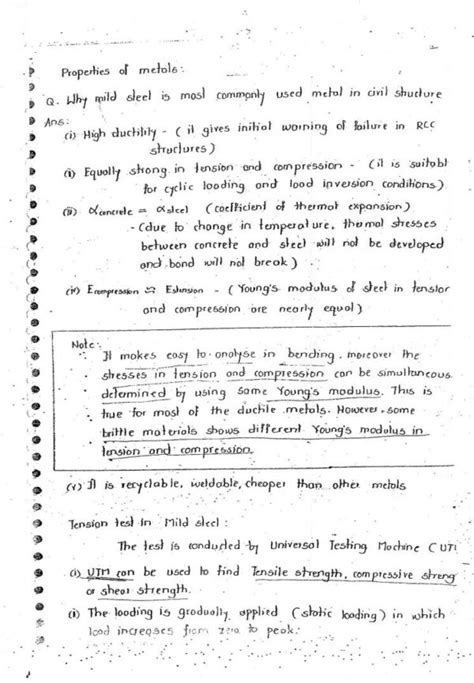 Properties of metals:
Q. Why mild steel is most commonly used metal in civil structure
Ans:
(i) High ductility - ( it gives initial warning of failure in RCC
structures )
(ii) Equally strong in tension and compression - ( it is suitabl
for cyclic loading and load inversion conditions )
(iii) αconcrete = αsteel (coefficient of thermal expansion)
- (due to change in temperature, thermal stresses
between concrete and steel will not be developed
and bond will not break )
(iv) Ecompression ≈ Etension - ( Young's modulus of steel in tension
and compression are nearly equal )
Note:
It makes easy to analyse in bending. moreover the
stresses in tension and compression can be simultaneous
determined by using same Young's modulus. This is
true for most of the ductile metals. However, some
brittle materials shows different Young's modulus in
tension and compression.
(v) It is recyclable, weldable, cheaper than other metals
Tension test in Mild steel :
The test is conducted by Universal Testing Machine ( UTM
(i) UTM can be used to find Tensile strength, compressive streng
or shear strength.
(ii) The loading is gradually applied ( static loading ) in which
load increases from zero to peak.